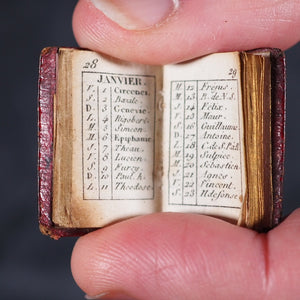 28
JANVIER.
V. 1 Circonci.
S. 2 Basile.
D. 3 Genevie.
L. 4 Rigobert.
M. 5 Simeon.
M. 6 Epiphanie
J. 7 Theau.
V. 8 Lucien.
S. 9 Furcy.
D. 10 Paul. h.
L. 11 Theodose.
29
M. 12
M. 13 B. de N.S.
J. 14 Felix.
V. 15 Maur.
S. 16 Guillaume
D. 17 Antoine.
L. 18 C. de S. Pub
M. 19 Sulpice.
M. 20 Sebastien.
J. 21 Agnes.
V. 22 Vincent.
S. 23 Ildefonse